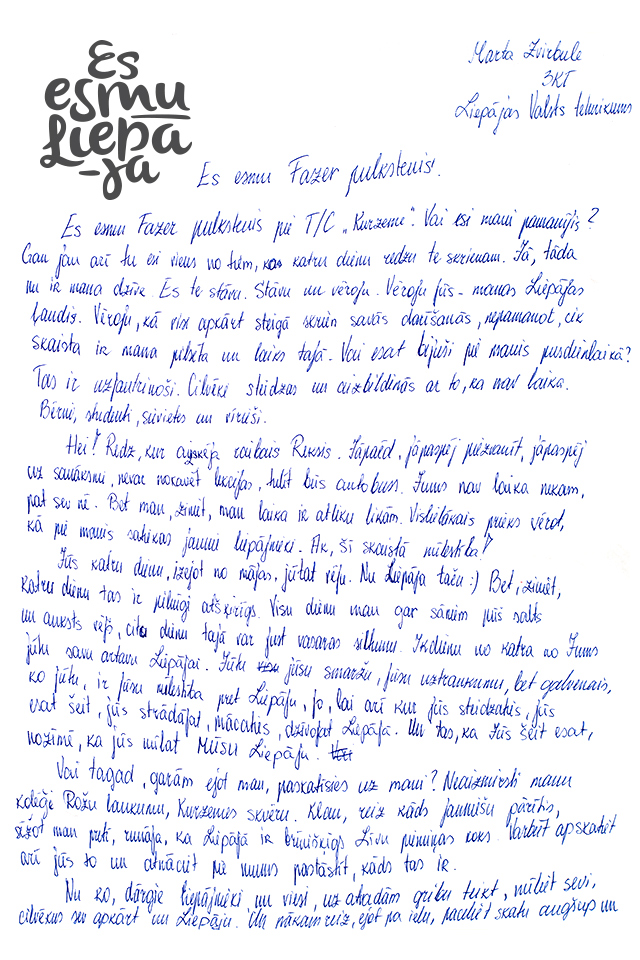 Es
esmu
Liepa
-ja
Marta Zvirbule
3KT
Liepājas Valsts tehnikums
Es esmu Fazer pulkstenis!
Es esmu Fazer pulkstenis pie T/C „Kurzeme". Vai esi mani pamanījis?
Gan jau arī tu esi viens no tiem, ko katru dienu redzu te skrienam. Jā, tāda
nu ir mana dzīve. Es te stāvu. Stāvu un vēroju. Vēroju jūs - manas Liepājas
ļaudis. Vēroju, kā visi apkārt steigā skrien savās darīšanās, nepamanot, cik
skaista ir mana pilsēta un laiks tajā. Vai esat bijuši pie manis pusdienlaikā?
Tas ir uzjautrinoši. Cilvēki steidzas un aizbildinās ar to, ka nav laika.
Bērni, studenti, sievietes un vīrieši.
Hei! Redz, kur aizskrēja raibais Reksis. Jāpaēd, jāpaspēj piezvanīt, jāpaspēj
uz sanāksmi, nevar nokavēt lekcijas, tūlīt būs autobuss. Jums nav laika nekam,
pat sev nē. Bet man, ziniet, man laika ir atliku likām. Vislielākais prieks vērot,
kā pie manis satiekas jaunie liepājnieki. Ak, šī skaistā mīlestība!
Jūs katru dienu, izejot no mājas, jūtat vēju. Nu Liepāja taču :) Bet, ziniet,
katru dienu tas ir pilnīgi atšķirīgs. Visu dienu man gar sāniem pūš salts
un auksts vējš, citu dienu tajā var just vasaras siltumu. Ikdienu no katra no Jums
jūtu savu artavu Liepājai. Jūtu jūsu smaržu, jūsu uztraukumu, bet galvenais,
ko jūtu, ir jūsu mīlestība pret Liepāju, jo, lai arī kur jūs steidzaties, jūs
esat šeit, jūs strādājat, mācaties, dzīvojat Liepājā. Un tas, ka Jūs šeit esat,
nozīmē, ka jūs mīlat MŪSU Liepāju.
Vai tagad, garām ejot man, paskatīsies uz mani? Neaizmirsti manu
kolēģi Rožu laukumu, Kurzemes skvēru. Klau, reiz kāds jauniešu pārītis,
sēžot man pretī, runāja, ka Liepājā ir brīnišķīgs Līvu piemiņas koks. Varbūt apskatiet
arī jūs to un atnāciet pie mums pastāstīt, kāds tas ir.
Nu ko, dārgie liepājnieki un viesi, uz atvadām gribu teikt, mīliet sevi,
cilvēkus sev apkārt un Liepāju. Un nākamreiz, ejot pa ielu, paceliet skatu augšup un